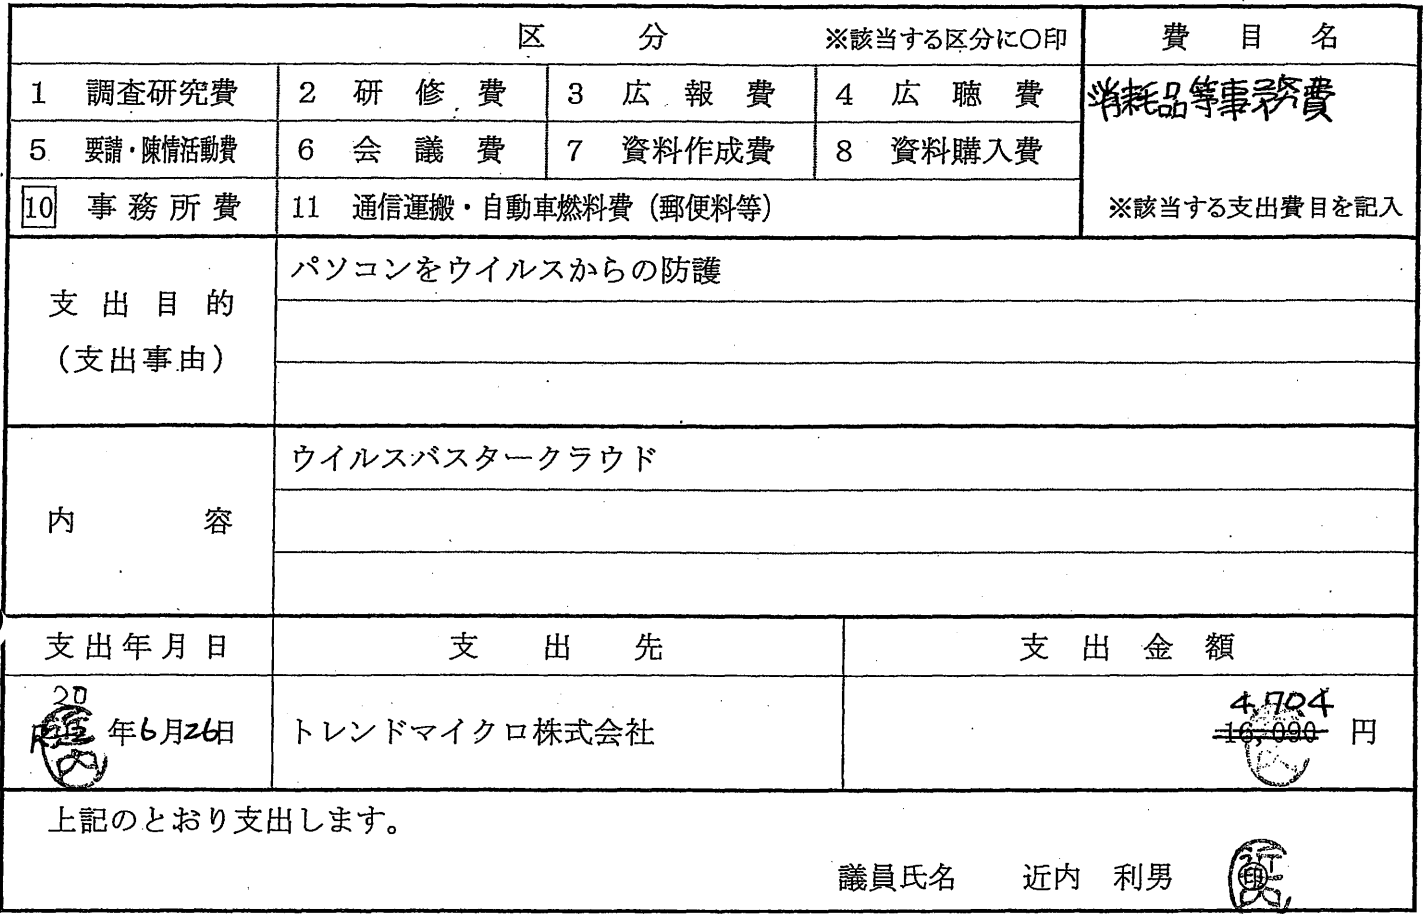 区 分 ※該当する区分に○印 費 目 名
1 調査研究費 2 研 修 費 3 広 報 費 4 広 聴 費 消耗品等事務費
5 要請・陳情活動費 6 会 議 費 7 資料作成費 8 資料購入費
10 事 務 所 費 11 通信運搬・自動車燃料費（郵便料等） ※該当する支出費目を記入
支 出 目 的
（支出事由）
パソコンをウイルスからの防護
内 容
ウイルスバスタークラウド
支出年月日 支 出 先 支 出 金 額
20 4,704
年6月26日 トレンドマイクロ株式会社 16,090 円
上記のとおり支出します。
議員氏名 近内 利男 ㊞